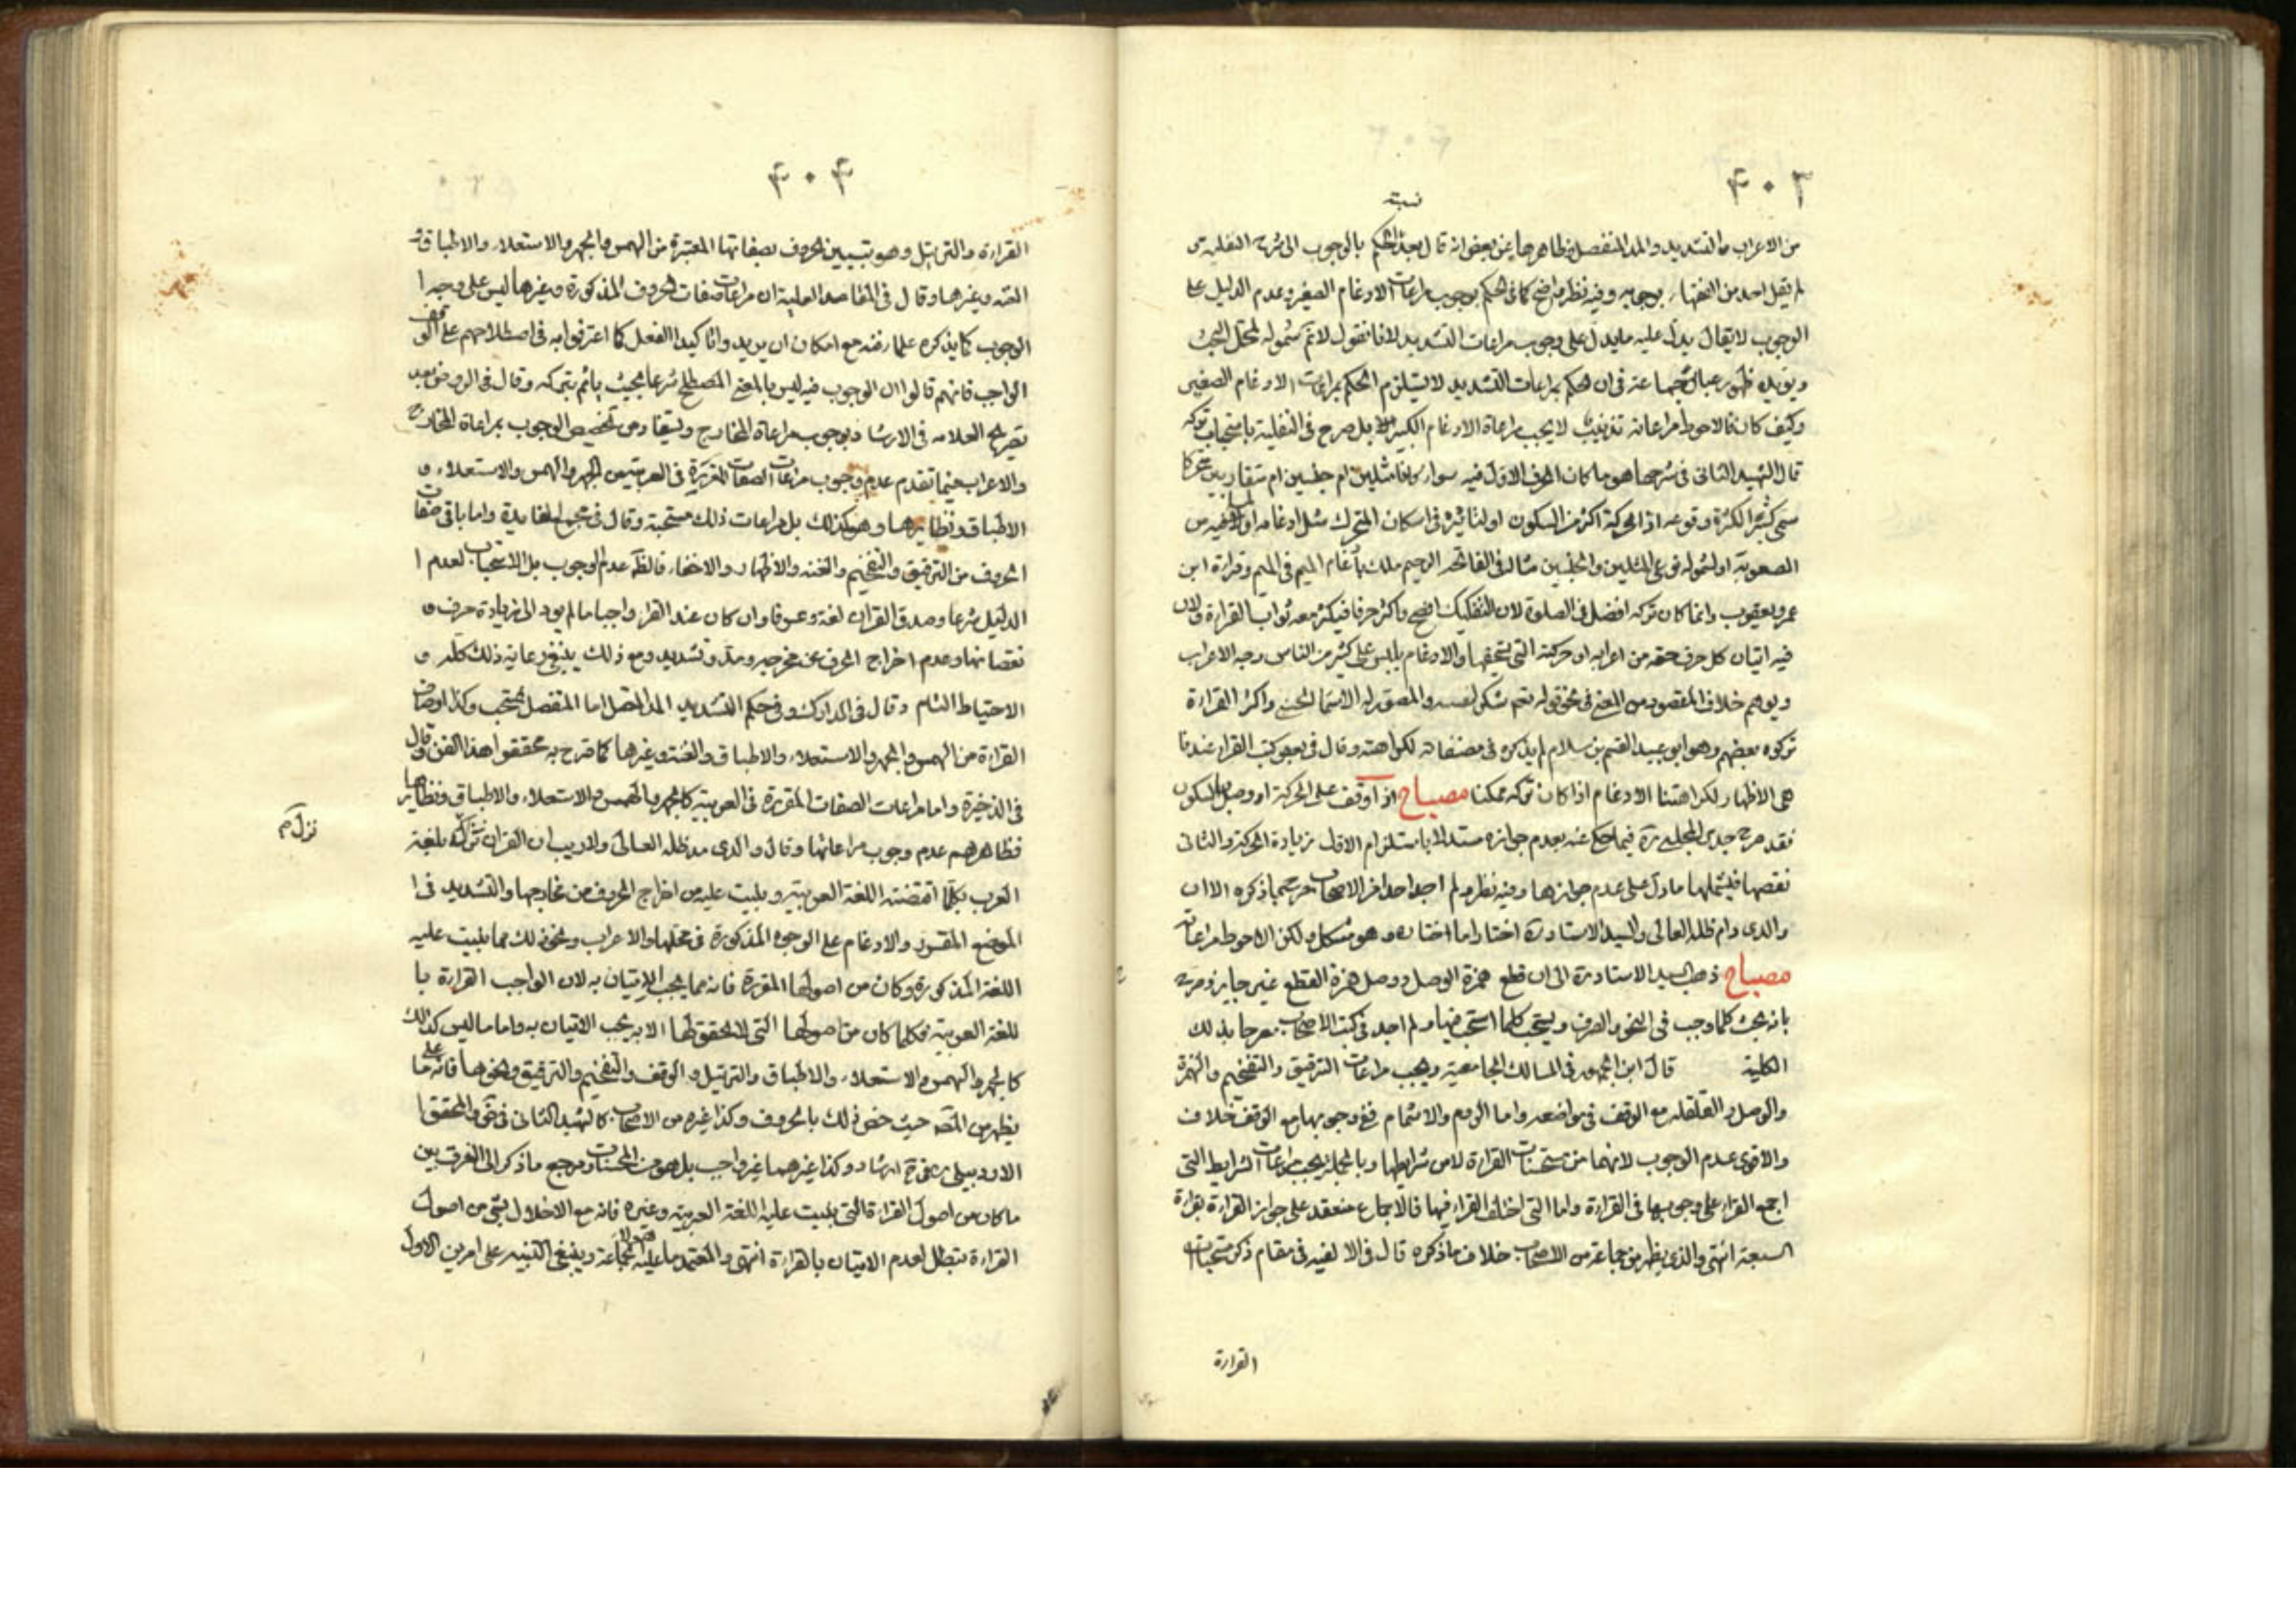 ٤٠٣
نسبته
من الاعراب والتشديد والمد المنفصل فظاهرها عن بعض انه قال بعد الحكم بالوجوب الى شرح النفلية من
لم يقل احد من الفقهاء بوجوبه وفيه نظر واضح كما في الحكم بوجوب مراعات الادغام الصغير وعدم الدليل على
الوجوب لا يقال يدل عليه ما يدل على وجوب مراعات التشديد لانا نقول لا نم شموله لمحل البحث
ويؤيده ظهور عبائر جماعة في ان الحكم بمراعات التشديد لا يستلزم الحكم بمراعات الادغام الصغير
وكيف كان فالاحوط مراعاته تذنيب لا يجب مراعاة الادغام الكبير بل صرح في النفلية باستحباب تركه
قال الشهيد الثاني في شرحها هو ما كان الحرف الاول فيه سواء كانا مثلين ام جنسين ام متقاربين متحركا
سمى كبيرا لكثرة وقوعه اذ الحركة اكثر من السكون او لتاثيره في اسكان المتحرك قبل ادغامه او لما فيه من
الصعوبة او لشموله نوعي المثلين والجنسين مثاله في الفاتحة الرحيم ملك بادغام الميم في الميم وقراءة ابن
عمرو يعقوب وانما كان تركه افضل في الصلوة لان التفكيك افصح واكثر حرفا فيكثر معه ثواب القراءة ولان
فيه اتيان كل حرف حقه من اعرابه او حركته التي يستحقها والادغام يلبس على كثير من الناس وجه الاعراب
ويوهم خلاف المقصود من المعنى في نحو قوله نعم يشكر لنفسه والمصور له الاسماء الحسنى واكثر القراءة
تركوه بعضهم وهو ابو عبيد القسم بن سلام لم يذكره في مصنفاته لكراهته وقال في بعض كتب القراء عندنا
هي الاظهار لكراهتنا الادغام اذا كان تركه ممكنا مصباح اذا وقف على الحركة او وصل بالسكون
فقد صرح جدي المجلسي ره فيما حكي عنه بعدم جوازه مستدلا باستلزام الاول زيادة الحركة والثاني
نقصها فيشملها ما دل على عدم جوازها وفيه نظر ولم اجد احدا من الاصحاب صرح بما ذكره الا ان
والدي دام ظله العالي والسيد الاستاد ره اختارا ما اختاره وهو مشكل ولكن الاحوط مراعاته
مصباح ذهب السيد الاستاد ره الى ان قطع همزة الوصل ووصل همزة القطع غير جايز وصرح
بانه يجب كلما وجب في النحو والصرف ويستحب كلما استحب فيها ولم اجد في كتب الاصحاب مصرحا بذلك
الكلية قال ابن الجمهور في المسالك الجامعية ويجب مراعات الترقيق والتفخيم والهمزة
والوصل والقلقلة مع الوقف في مواضعه واما الروم والاشمام ففي وجوبهما مع الوقف خلاف
والاقوى عدم الوجوب لانهما من مستحسنات القراءة لا من شرايطها وبالجملة يجب مراعات الشرايط التي
اجمع القراء على وجوبها في القراءة واما التي اختلف القراء فيها فالاجماع منعقد على جواز القراءة بقراءة
السبعة انتهى والذي يظهر من جماعة من الاصحاب خلاف ما ذكره قال في الالفية في مقام ذكر مستحبات
القراءة
٤٠٤
القراءة والترتيل وهو تبيين الحروف بصفاتها المعتبرة من الهمس والجهر والاستعلاء والاطباق و
الغنة وغيرها وقال في المقاصد العلية ان مراعات صفات الحروف المذكورة وغيرها ليس على وجه ا
الوجوب كما يذكره علماء فنه مع امكان ان يريدوا تاكيد الفعل كما اعترفوا به في اصطلاحهم على الوقف
الواجب فانهم قالوا ان الوجوب فيه ليس بالمعنى المصطلح شرعا بحيث ياثم بتركه وقال في الروض بعد
تصريح العلامه في الارشاد بوجوب مراعاة المخارج ويستفاد من تخصيص الوجوب بمراعاة المخارج
والاعراب فيما تقدم عدم وجوب مراعات الصفات المقررة في العربية من الجهر والهمس والاستعلاء و
الاطباق ونظايرها وهو كذلك بل مراعات ذلك مستحبة وقال في مجمع الفايدة واما باقي صفات
الحروف من الترقيق والتفخيم والغنة والاظهار والاخفاء فالظ عدم الوجوب بل الاستحباب لعدم ا
الدليل شرعا وصدق القران لغة وعرفا وان كان عند القراء واجبا ما لم يود الى زيادة حرف و
نقصانها وعدم اخراج الحرف عن مخرجه ومد وتشديد ومع ذلك ينبغي رعاية ذلك كله و
الاحتياط التام وقال في المدارك وفي حكم التشديد المد المتصل اما المنفصل فمستحب وكذا اوصاف
القراءة من الهمس والجهر والاستعلاء والاطباق والغنة وغيرها كما صرح به محققوا هذا الفن وقال
في الذخيرة واما مراعات الصفات المقررة في العربية كالجهر والهمس والاستعلاء والاطباق ونظايرها
فظاهرهم عدم وجوب مراعاتها وقال والدي مد ظله العالى ولا ريب ان القران نزل بلغة
نزل م
العرب بكلما اقتضته اللغة العربية وبنيت عليه من اخراج الحروف من مخارجها والتشديد في ا
الموضع المقرر والادغام على الوجوه المذكورة في محلها والاعراب ونحو ذلك مما بنيت عليه
اللغة المذكورة وكان من اصولها المقررة فانه مما يجب الاتيان به لان الواجب القراءة با
للغة العربية فكلما كان من اصولها التي لا تحقق لها الا به يجب الاتيان به واما ما ليس كذلك
كالجهر والهمس والاستعلاء والاطباق والترتيل والوقف والتفخيم والترقيق ونحوها فانه على ما
يظهر من المص حيث خص ذلك بالحروف وكذا غيره من الاصحاب كالشهيد الثاني في ض والمحقق ا
الاردبيلي ره في شرح الارشاد وكذا غيرهما غير واجب بل هو من المحسنات ومرجع ما ذكر الى الفرق بين
ما كان من اصول القراءة التي بنيت عليه اللغة العربية وغيره فانه مع الاخلال بشيء من اصول
القراءة تبطل لعدم الاتيان بالقراءة انتهى والمعتمد ما عليه الجماعة وينبغي التنبيه على امرين الاول